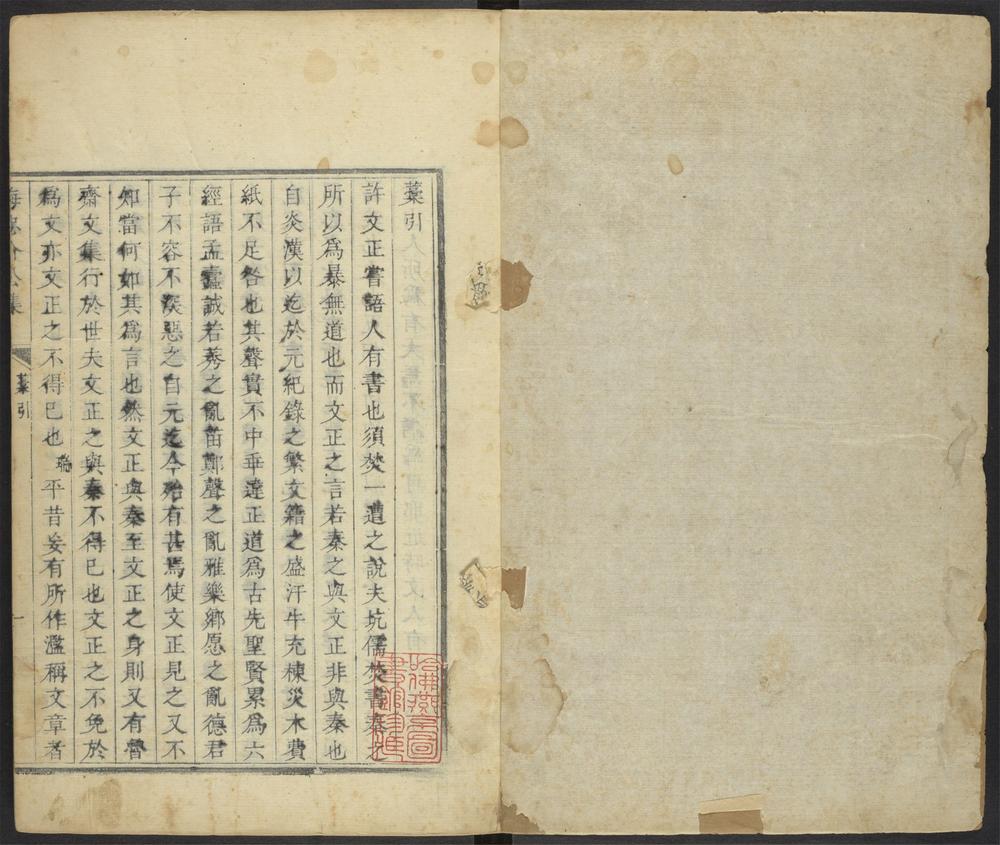 藁引
許文正嘗語人有書也須焚一遭之說夫坑儒焚書秦之
所以為暴無道也而文正之言若秦之與文正非與秦也
自炎漢以迄於元紀錄之繁文籍之盛汗牛充棟災木費
紙不足咎也其聲實不中垂違正道為古先聖賢累為六
經語孟蠧誠若莠之亂苗鄭聲之亂雅樂鄉愿之亂德君
子不容不深惡之自元迄今殆有甚焉使文正見之又不
知當何如其為言也然文正與秦至文正之身則又有魯
齋文集行於世夫文正之與秦不得已也文正之不免於
為文亦文正之不得已也瑞平昔妄有所作濫稱文章者
海忠介公集
藁引
一
哈佛燕京圖書館珍藏